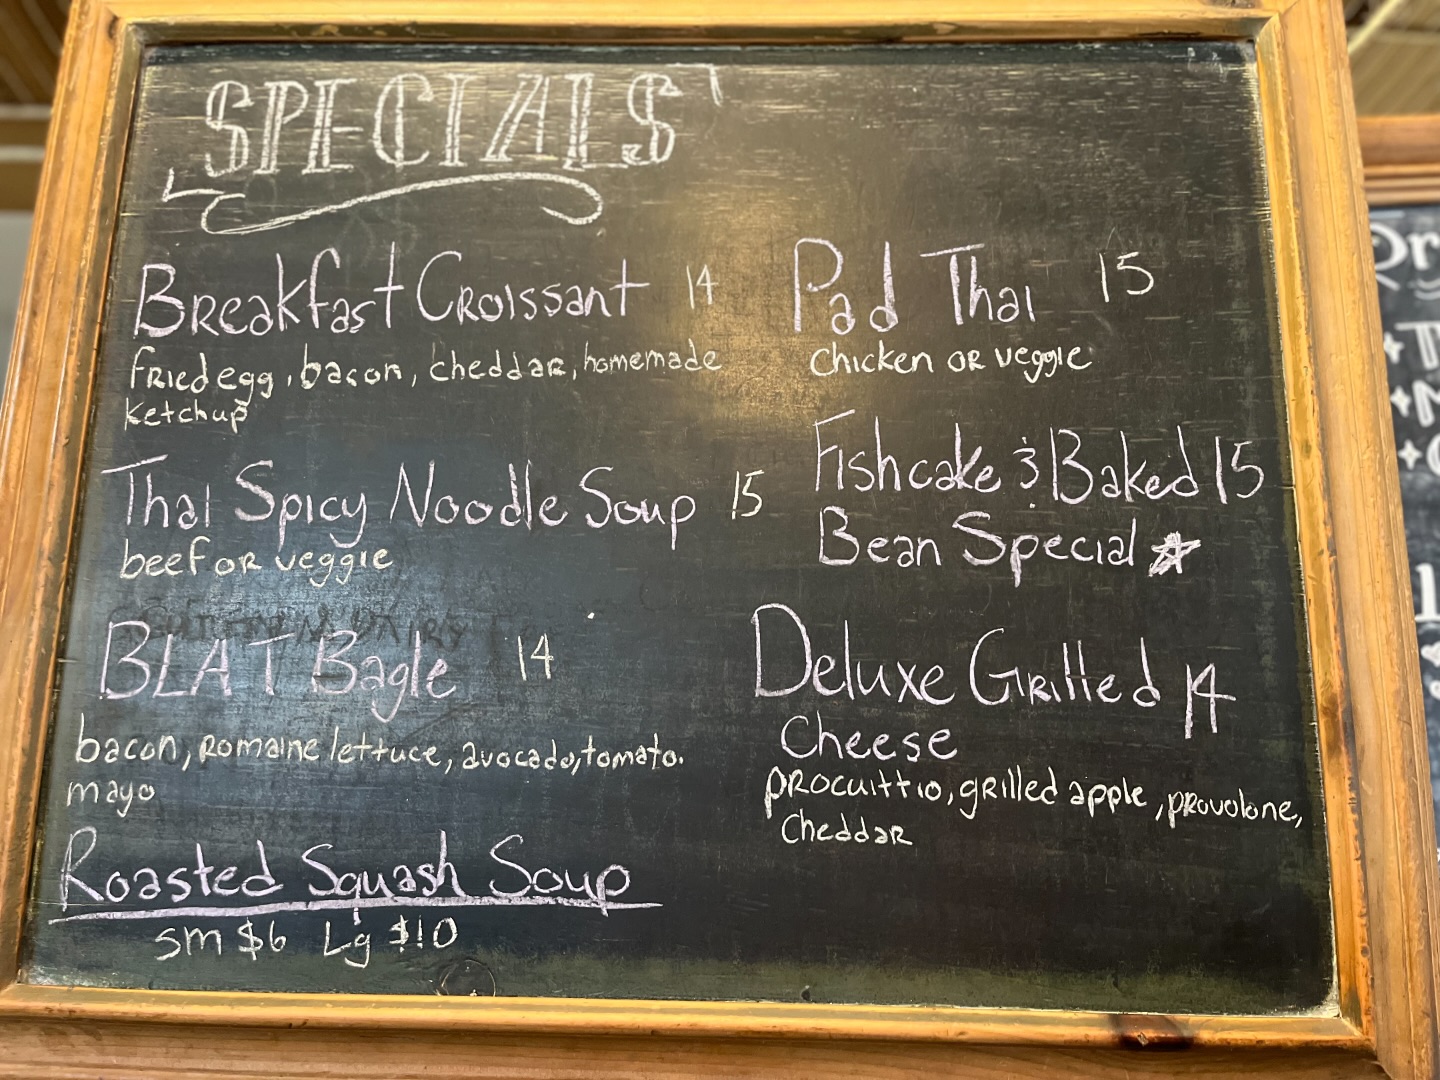 SPECIALS
Breakfast Croissant 14
fried egg, bacon, cheddar, homemade
ketchup
Thai Spicy Noodle Soup 15
beef or veggie
BLAT Bagle 14
bacon, romaine lettuce, avocado, tomato.
mayo
Roasted Squash Soup
sm $6 Lg $10
Pad Thai 15
chicken or veggie
Fishcake & Baked 15
Bean Special
Deluxe Grilled 14
Cheese
procuittio, grilled apple, provolone,
cheddar